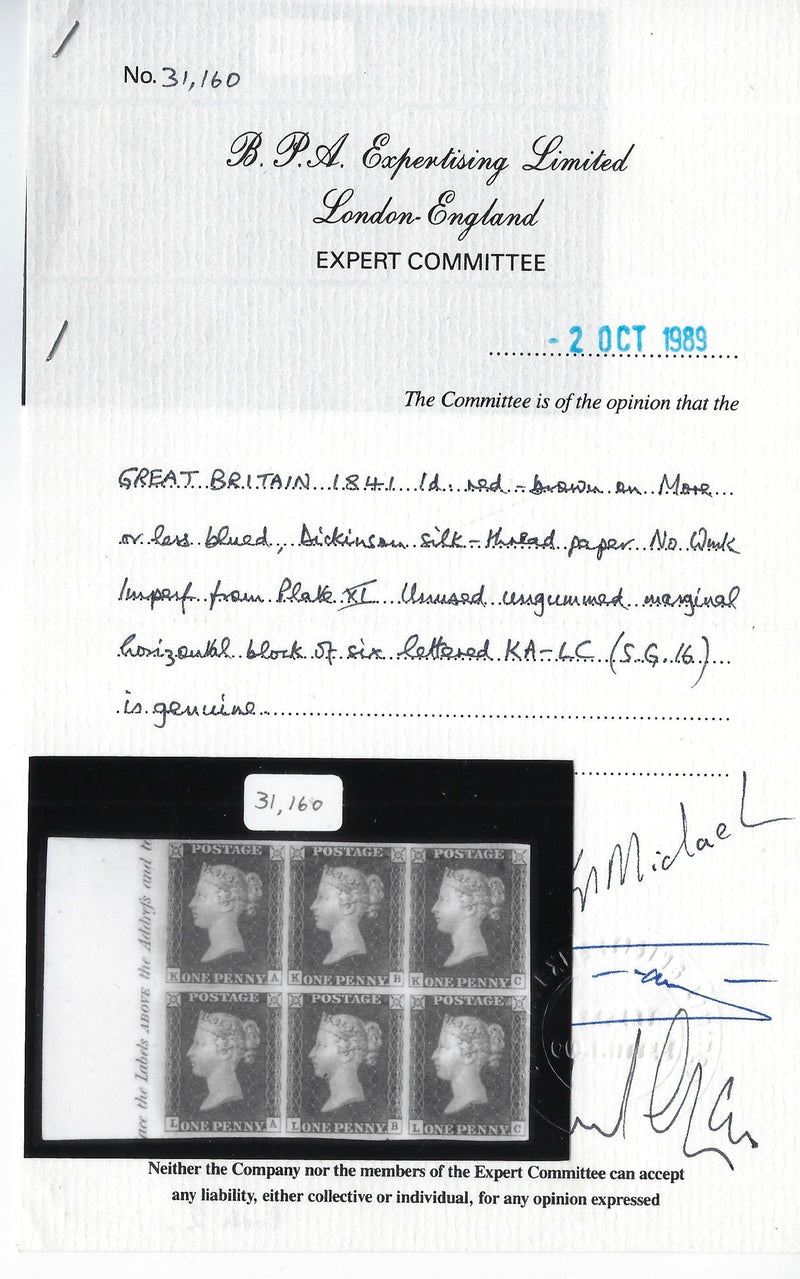 No. 31,160
B. P. A. Expertising Limited
London-England
EXPERT COMMITTEE
- 2 OCT 1989
The Committee is of the opinion that the
GREAT BRITAIN 1841 1d. red-brown on More
or less blued, Dickinson silk-thread paper No Wmk
Imperf from Plate XI Unused ungummed marginal
horizontal block of six lettered KA-LC (S.G.16)
is genuine
31,160
ace the Labels ABOVE the Addrefs and to
POSTAGE POSTAGE POSTAGE
K ONE PENNY. A K ONE PENNY. B K ONE PENNY. C
POSTAGE POSTAGE POSTAGE
L ONE PENNY. A L ONE PENNY. B L ONE PENNY. C
Michael
Neither the Company nor the members of the Expert Committee can accept
any liability, either collective or individual, for any opinion expressed